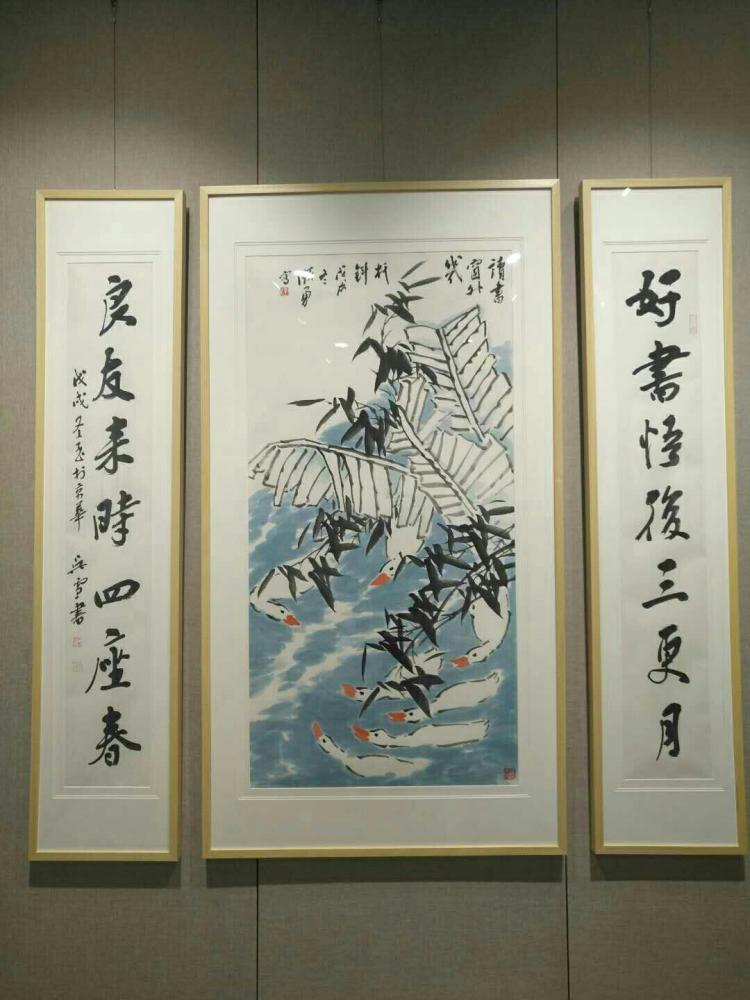 好書悟後三更月
讀書
窗外
戊戌
冬
寫
良友来時四座春
戊戌冬至於京華 吳雪書